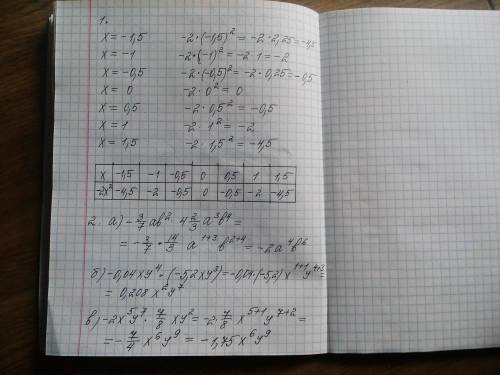 1.
x = -1,5 -2·(-1,5)² = -2·2,25 = -4,5
x = -1 -2·(-1)² = -2·1 = -2
x = -0,5 -2·(-0,5)² = -2·0,25 = -0,5
x = 0 -2·0² = 0
x = 0,5 -2·0,5² = -0,5
x = 1 -2·1² = -2
x = 1,5 -2·1,5² = -4,5
x -1,5 -1 -0,5 0 0,5 1 1,5
-2x² -4,5 -2 -0,5 0 -0,5 -2 -4,5
2. а) -3/7 ab²· 4 2/3 a³b⁴ =
= -3/7 · 14/3 a¹⁺³ b²⁺⁴ = -2a⁴b⁶
б) -0,04xy⁴·(-5,2xy³) = -0,04·(-5,2)x¹⁺¹y⁴⁺³ =
= 0,208x²y⁷
в) -2x⁵y⁷· 7/8 xy² = -2· 7/8 x⁵⁺¹y⁷⁺² =
= -7/4 x⁶y⁹ = -1,75x⁶y⁹